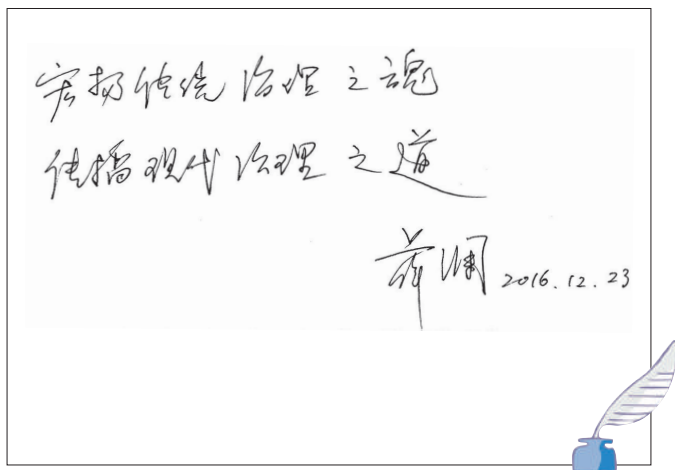 宏扬传统治理之魂
传播现代治理之道
薛澜 2016.12.23